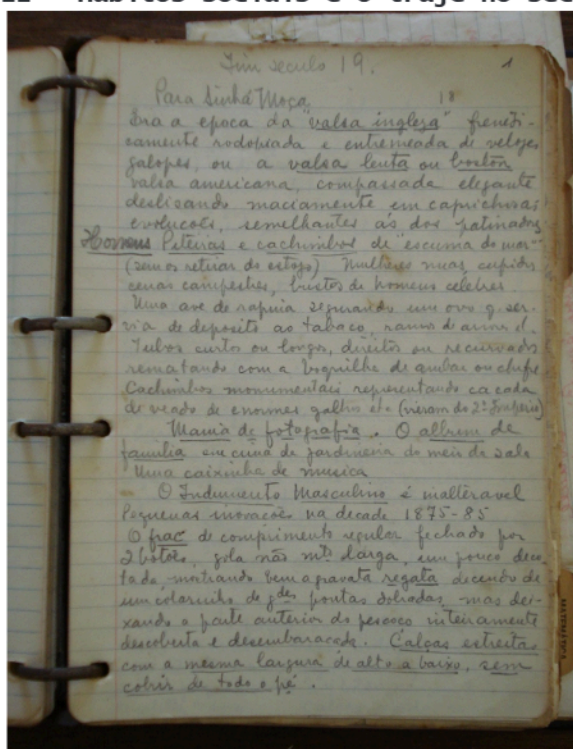 Fim seculo 19. 1
Para Sinhá Moça 18
Era a epoca da "valsa ingleza" freneti-
camente rodopiada e entremeada de velozes
galopes, ou a valsa lenta ou boston
valsa americana, compassada elegante
deslizando maciamente em caprichosas
evoluções, semelhantes ás dos patinadores
Homens Piteiras e cachimbos de "escuma do mar"
(sem os retirar do estojo) Mulheres nuas, cupidos
cenas campestres, bustos de homens celebres.
Uma ave de rapina segurando um ovo q. ser-
via de deposito ao tabaco, ramos de
Tubos curtos ou longos, direitos ou recurvados
rematando com a boquilha de ambar ou chifre
Cachimbos monumentais representando caçada
de veado de enormes galhos etc (vieram do 2º Imperio)
Mania de fotografia. O album de
familia em cima da jardineira do meio da sala
Uma caixinha de musica
O Indumento Masculino é inalteravel
Pequenas inovações na decade 1875-85
O frac de comprimento regular fechado por
2 botões, gola não mtº larga, um pouco deco
tada mostrando bem a gravata regata decendo de
um colarinho de gdes pontas dobradas, mas dei-
xando a parte anterior do pescoço inteiramente
descoberta e desembaraçada. Calças estreitas
com a mesma largura de alto a baixo, sem
cobrir de todo o pé.
MATEMATICA